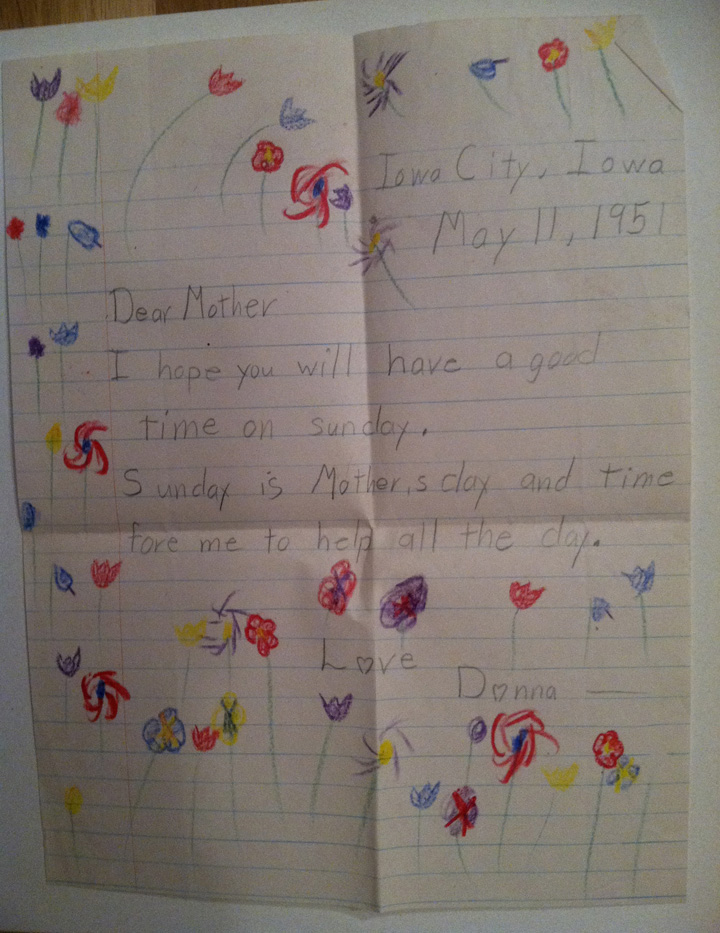 Iowa City, Iowa
May 11, 1951
Dear Mother
I hope you will have a good
time on sunday.
Sunday is Mother,s day and time
fore me to help all the day.
Love
Donna —